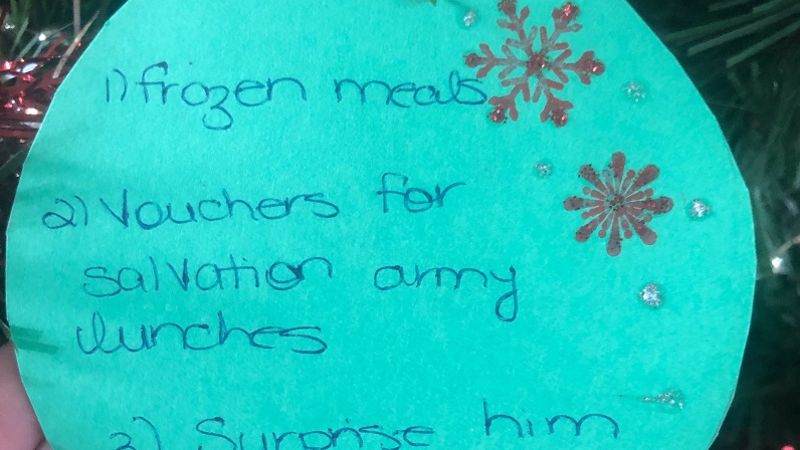 1) frozen meals
2) Vouchers for
salvation army
lunches
3) Surprise him